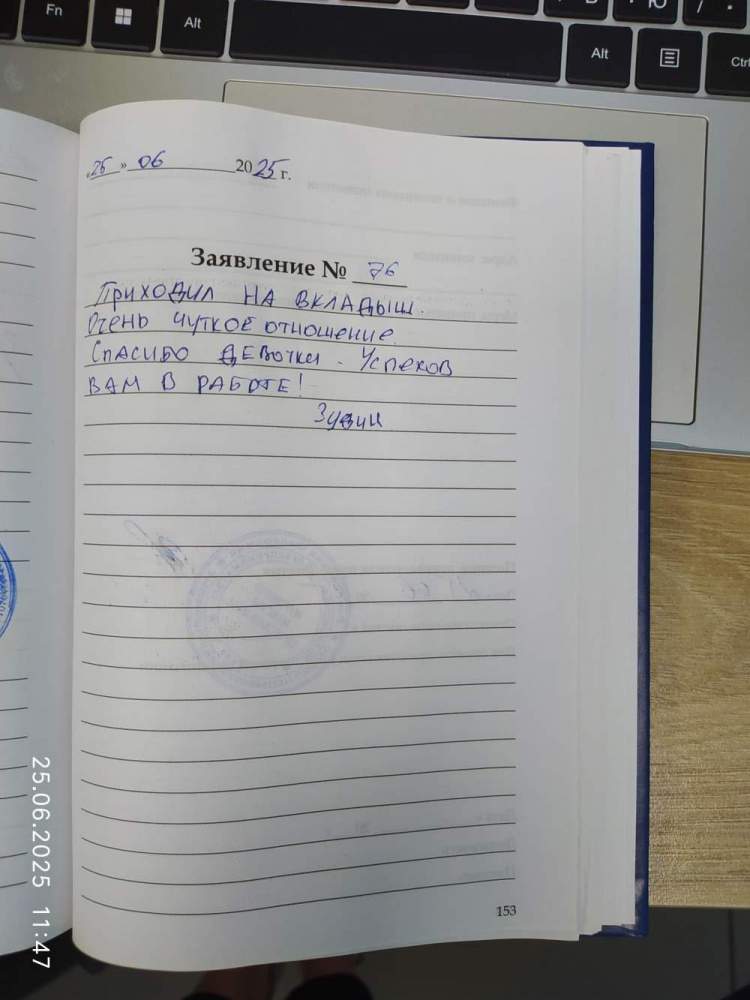 Fn
Alt
Alt
Ctrl
«25» 06 2025 г.
Заявление № 76
Приходил на вкладыш.
Очень чуткое отношение.
Спасибо девочки. Успехов
вам в работе!
153
25.06.2025 11:47